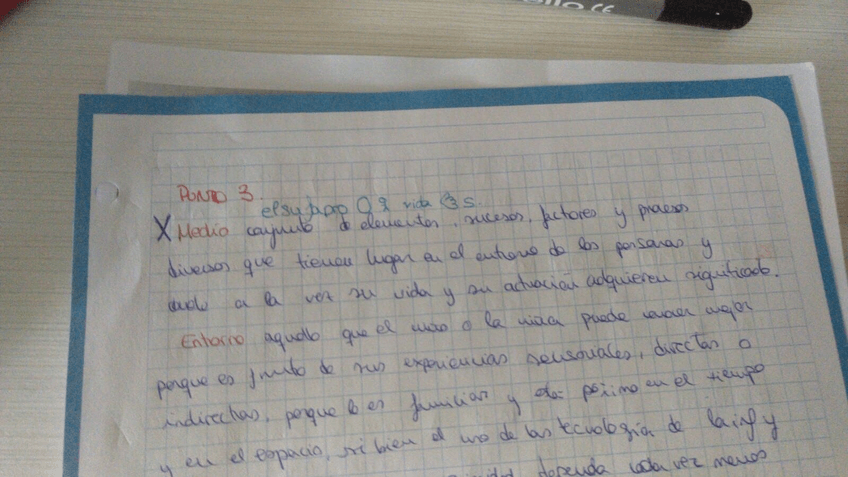 CE
PUNTO 3
X Medio conjunto de elementos, sucesos, factores y procesos
diversos que tienen lugar en el entorno de las personas y
donde a la vez su vida y su actuación adquieren significado.
Entorno aquello que el niño o la niña puede conocer mejor
porque es fruto de sus experiencias sensoriales, directas o
indirectas, porque le es familiar y está próximo en el tiempo
y en el espacio, si bien el uso de las tecnología de la inf y
dependa cada vez menos